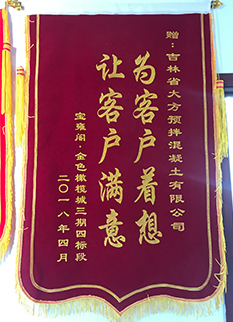 赠：吉林省大方预拌混凝土有限公司
为客户着想
让客户满意
宝雍阁·金色橄榄城三期四标段
二〇一八年四月